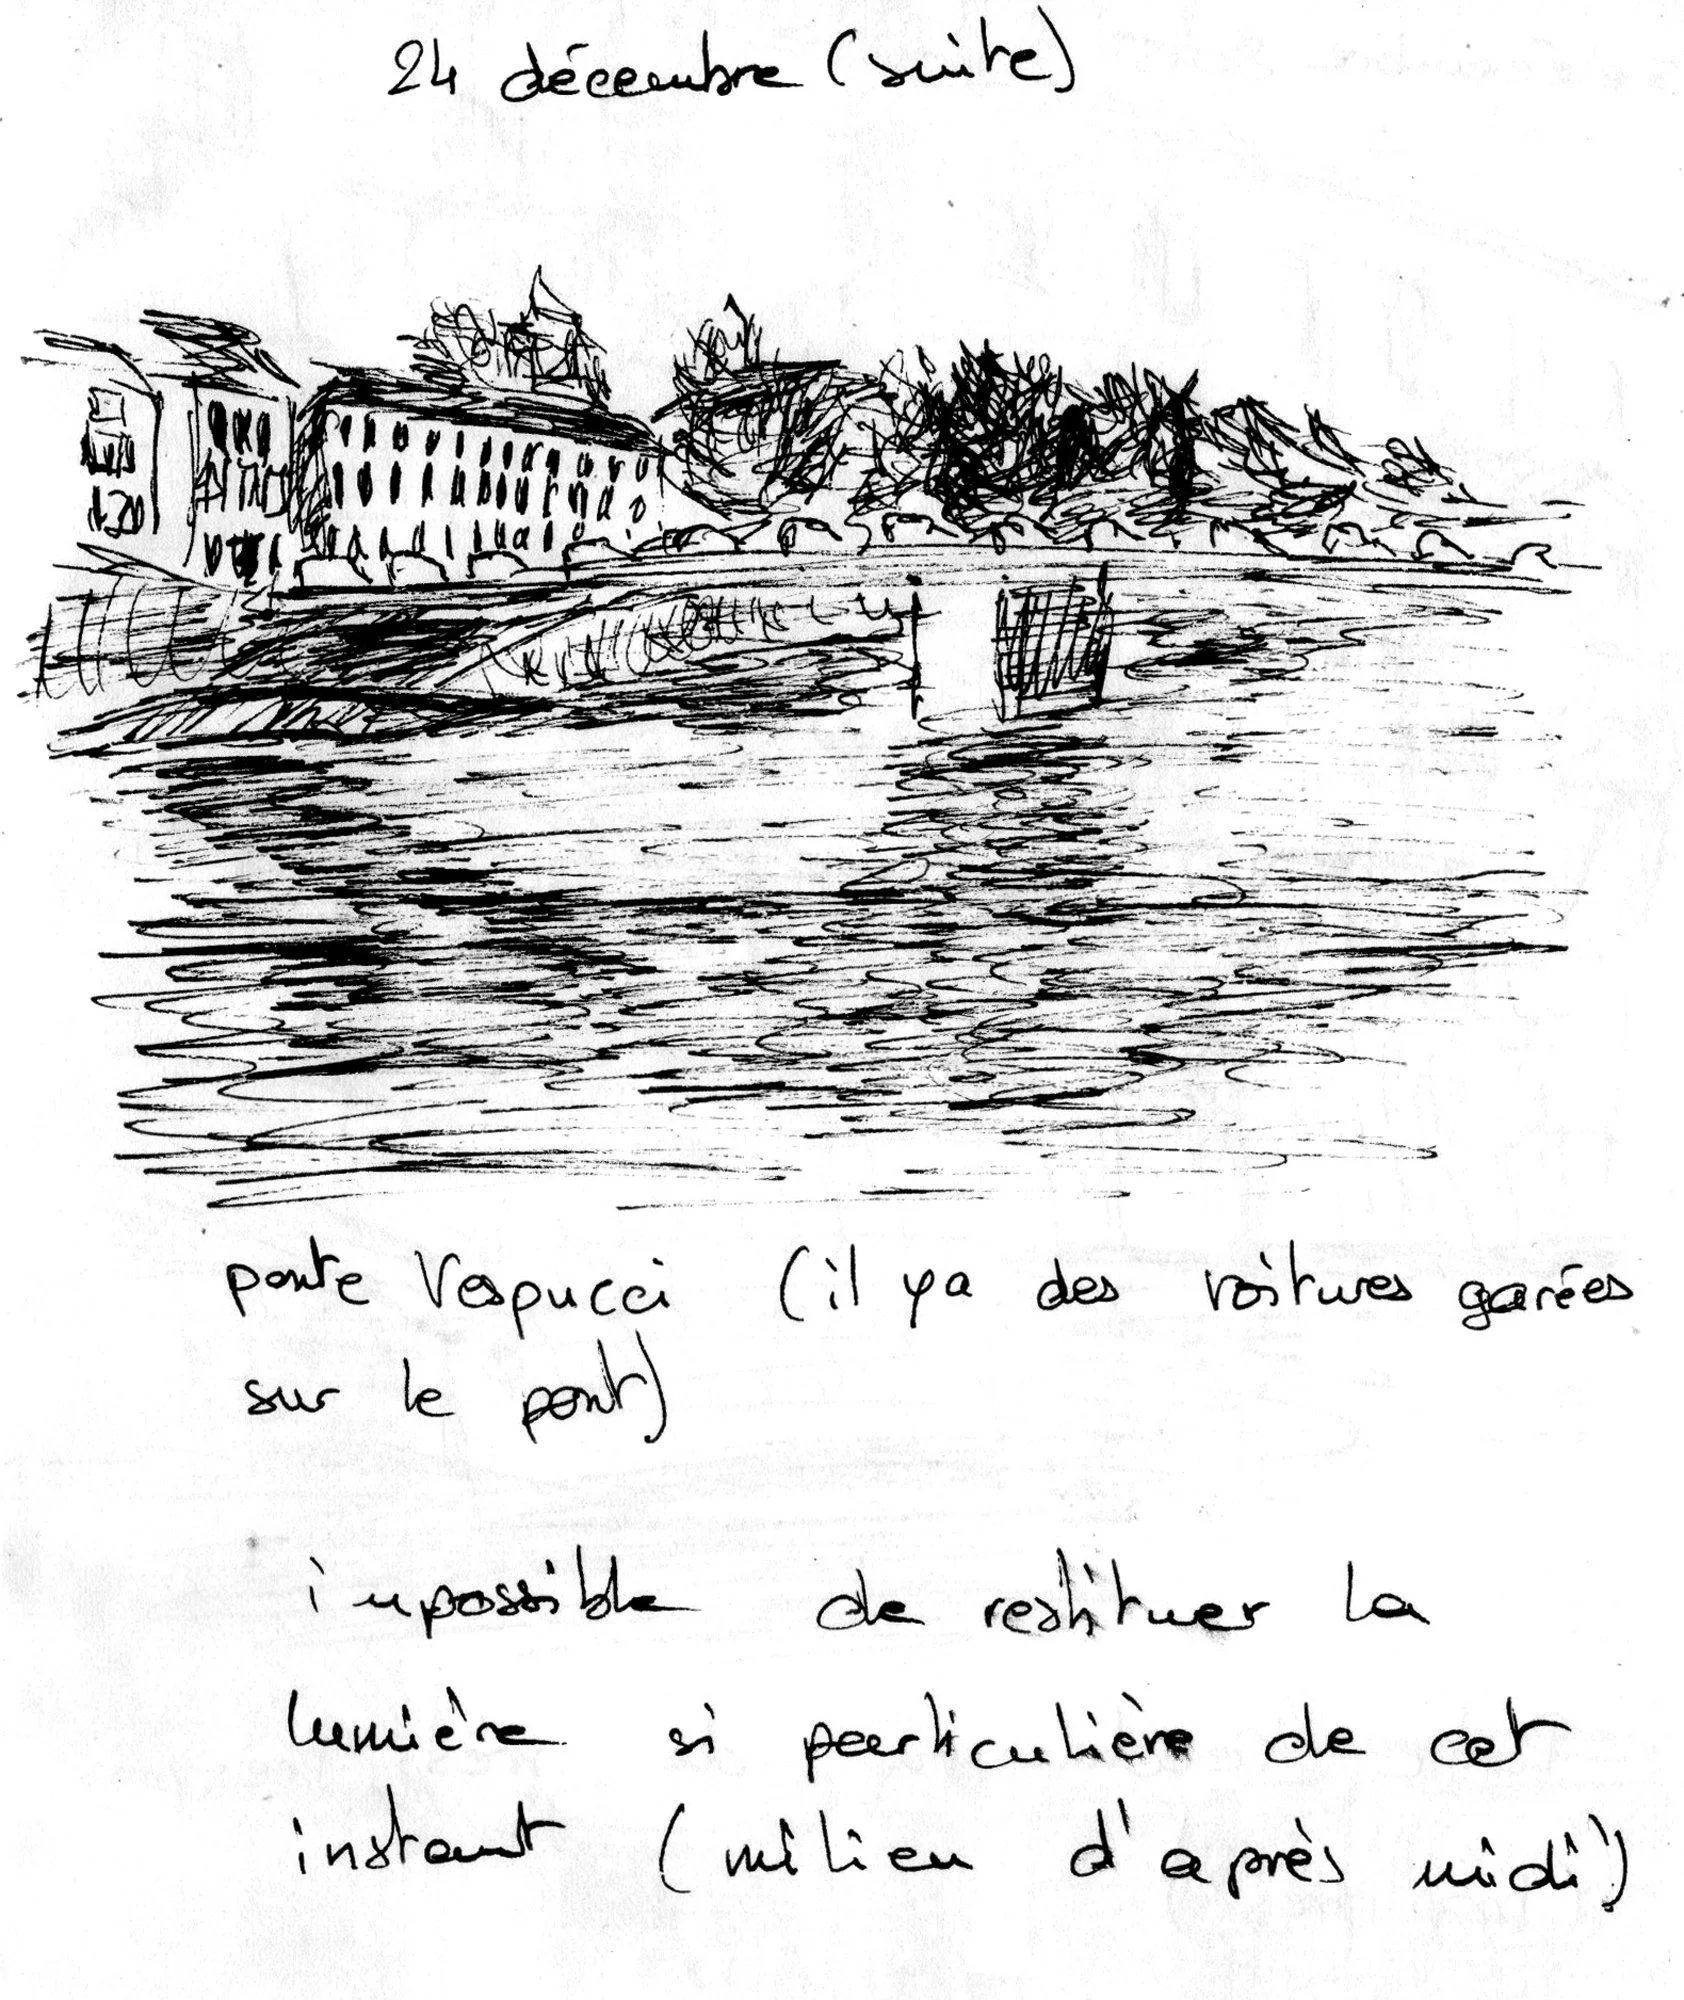 24 décembre (suite)
ponte Vespucci (il y a des voitures garées
sur le pont)
impossible de restituer la
lumière si particulière de cet
instant (milieu d'après midi)